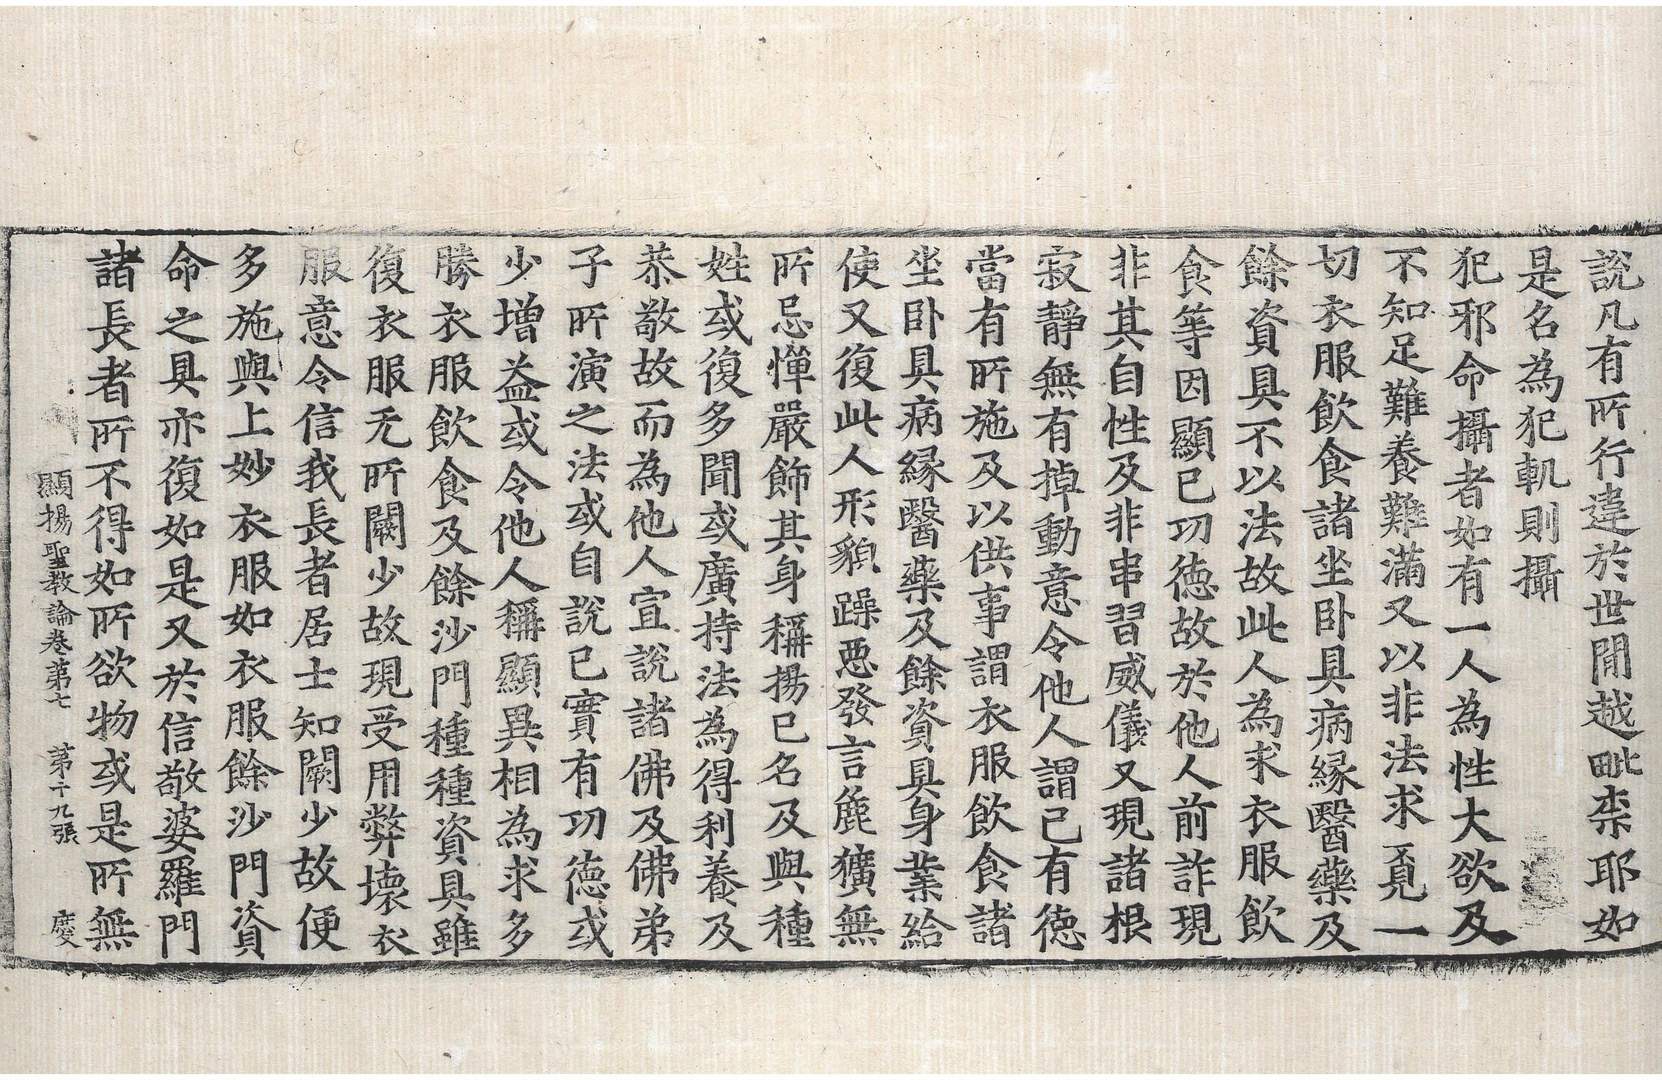 說凡有所行違於世間越毗柰耶如
是名為犯軌則攝
犯邪命攝者如有一人為性大欲及
不知足難養難滿又以非法求覓一
切衣服飲食諸坐卧具病緣醫藥及
餘資具不以法故此人為求衣服飲
食等因顯已功德故於他人前詐現
非其自性及非串習威儀又現諸根
寂靜無有掉動意令他人謂已有德
當有所施及以供事謂衣服飲食諸
坐卧具病緣醫藥及餘資具身業給
使又復此人形貌躁惡發言麁獷無
所忌憚嚴飾其身稱揚已名及與種
姓或復多聞或廣持法為得利養及
恭敬故而為他人宣說諸佛及佛弟
子所演之法或自說已實有功德或
少增益或令他人稱顯異相為求多
勝衣服飲食及餘沙門種種資具雖
復衣服无所闕少故現受用弊壞衣
服意令信我長者居士知闕少故便
多施與上妙衣服如衣服餘沙門資
命之具亦復如是又於信敬婆羅門
諸長者所不得如所欲物或是所無
顯揚聖教論卷第七 第十九張 慶